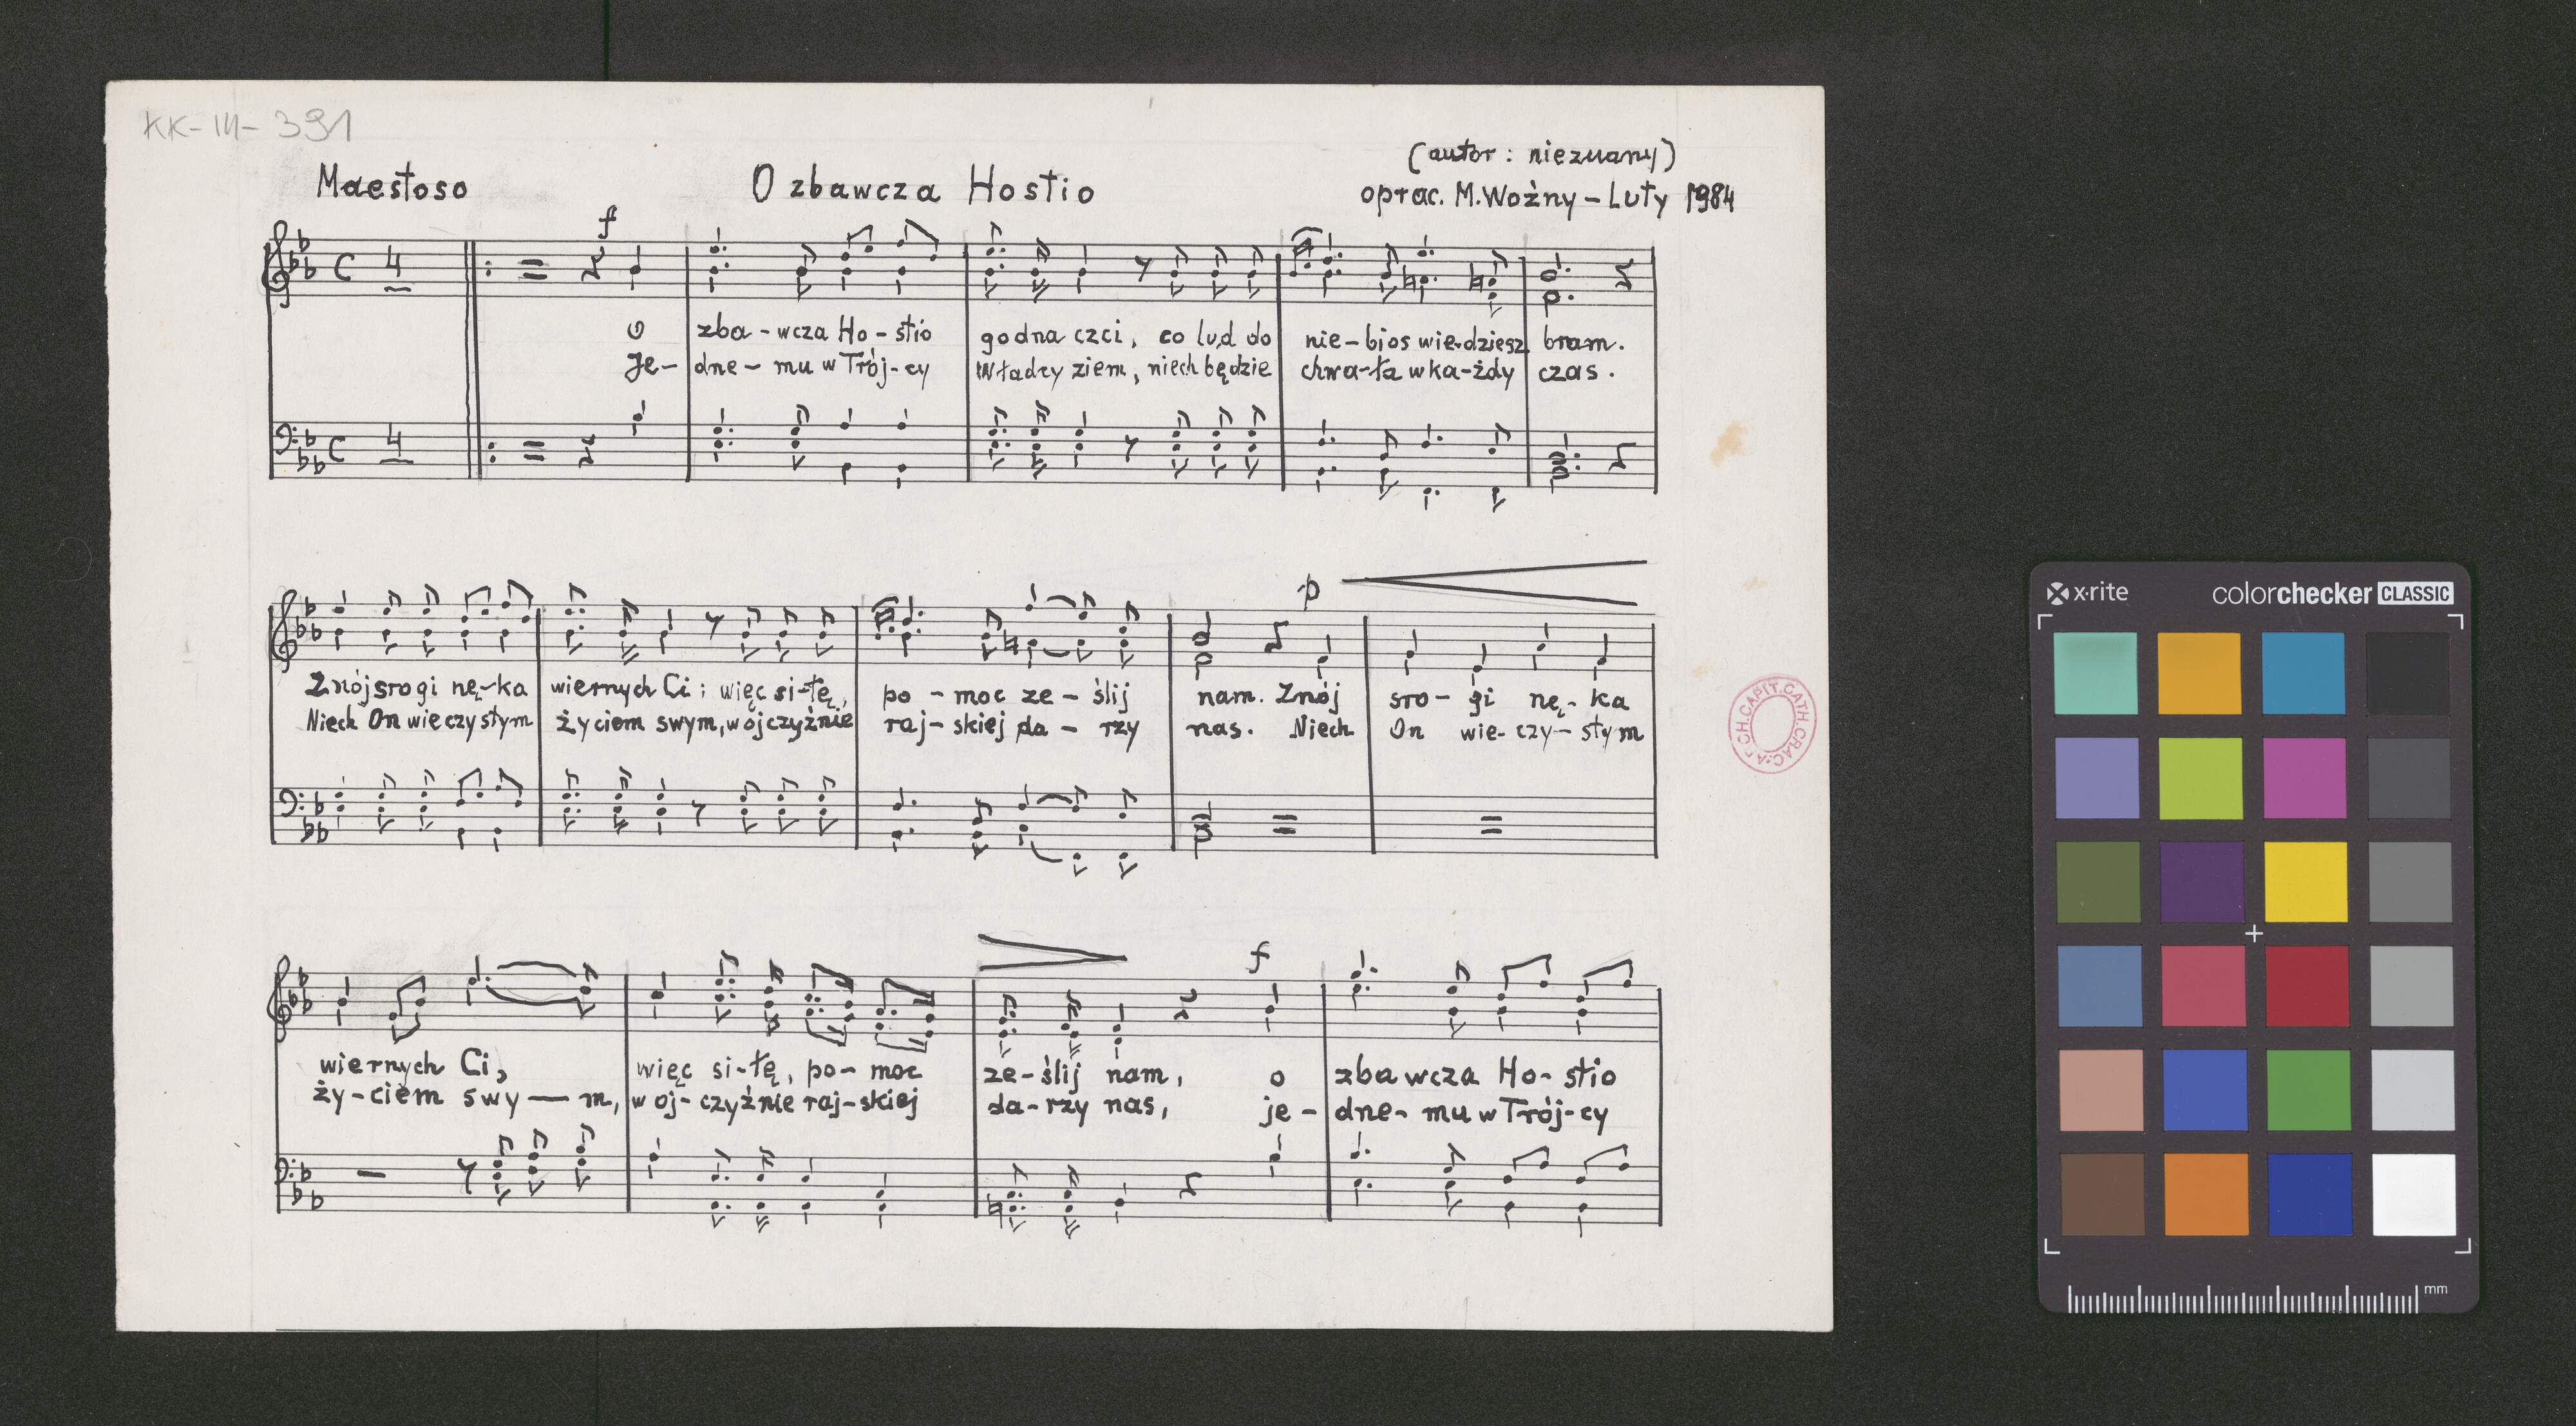 KK-III-391
(autor: nieznany)
Maestoso
O zbawcza Hostio
oprac. M. Woźny - Luty 1984
f
C 4
O zba-wcza Ho-stio godna czci, co lud do nie-bios wie-dziesz bram.
Je-dne-mu w Trój-cy Władzy ziem, niech będzie chwa-ła w ka-żdy czas.
C 4
p
Znój srogi nę-ka wiernych Ci; więc si-łę, po-moc ze-ślij nam. Znój sro-gi nę-ka
Niech On wieczystym życiem swym, w ojczyźnie raj-skiej da-rzy nas. Niech On wie-czy-stym
f
wiernych Ci, więc si-łę, po-moc ze-ślij nam, o zbawcza Ho-stio
ży-ciem swy—m, w oj-czyźnie raj-skiej da-rzy nas, je-dne-mu w Trój-cy
ARCH.CAPIT.CATH.CRAC.
x-rite
colorchecker CLASSIC
mm